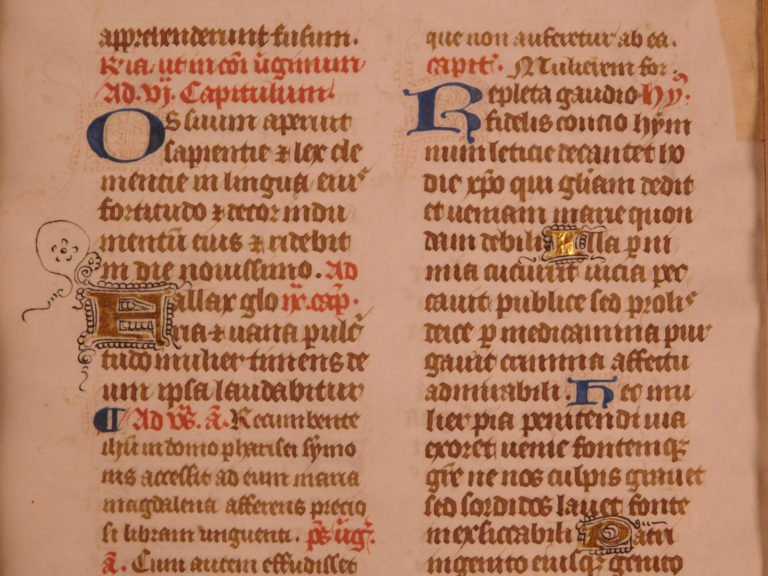 apprehenderunt fusum.
Ria. ut in cōi v̄ginum
Ad. vj. Capitulum.
Os suum aperuit
sapientie ⁊ lex cle
mentie in lingua eiuꝰ
fortitudo ⁊ decor indu
mentū eius ⁊ ridebit
in die nouissimo. Ad
Fallax glo ix. cap.
ria ⁊ uana pulc̄
tudo mulier timens de
um ipsa laudabitur
Ad vs̄. a. Recumbente
ihū in domo pharisei symo
nis accessit ad eum maria
magdalena afferens precio
si libram unguenti. ps̄ v̄g.
a. Cum autem effudisset
que non auferetur ab ea.
capit. Mulierem for.
Repleta gaudio hy.
fidelis concio hym
num leticie decantet ho
die xp̄o qui gl̄iam dedit
et ueniam marie quon
dam debili Illa p̄ni
mia cucurrit uicia pec
cauit publice sed prolis
deice ꝑ medicamina pur
gauit crimina affectu
admirabili. Hec mu
lier pia penitendi uia
exoret uenie fontemqꝫ
gr̄e ne nos culpis grauet
sed sordidos lauet fonte
inexsiccabili Patri
ingenito eiusqꝫ genito